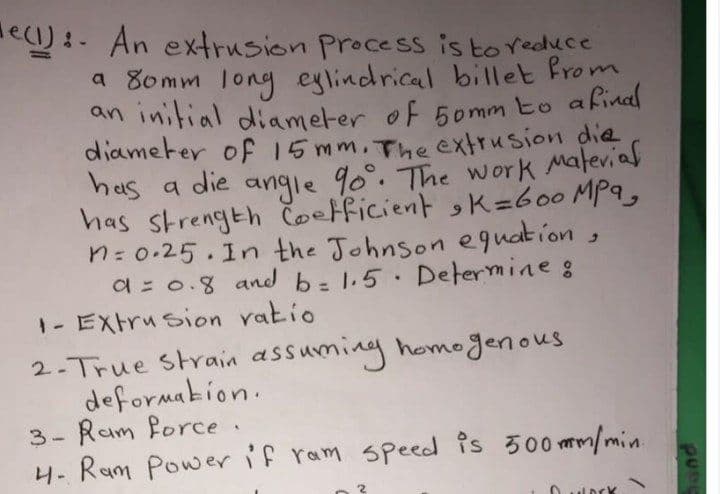 le(1):- An extrusion Process is to reduce
a 80mm long cylindrical billet from
an initial diameter of 50mm to a final
diameter of 15mm. The extrusion die
has a die angle 90°. The work Material
has strength Coefficient, K=600 MPa,
n=0.25. In the Johnson equation,
a=0.8 and b=1.5. Determine:
1- Extrusion ratio
2-True Strain assuming homogenous
deformation.
3- Ram force.
4- Ram Power if ram speed is 500mm/min